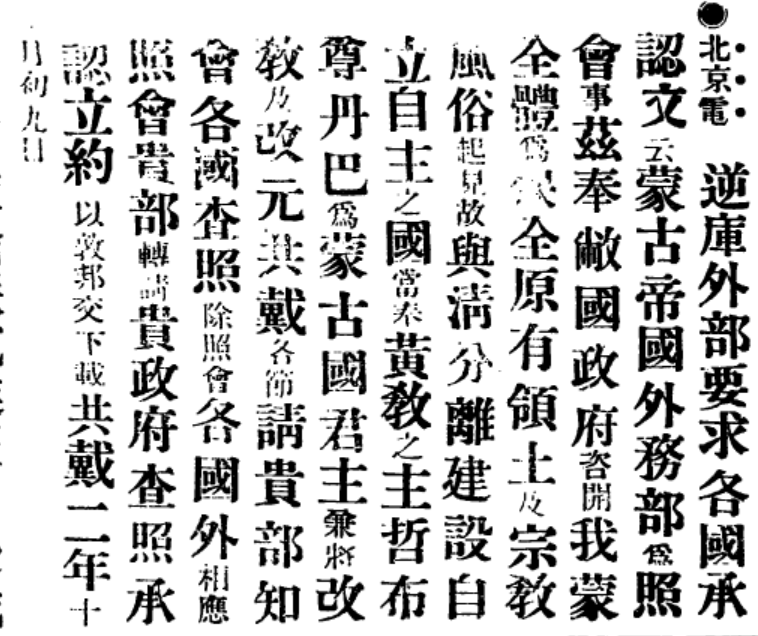 ●北京電　逆庫外部要求各國承
認文云蒙古帝國外務部爲照
會事茲奉敝國政府咨開我蒙
全體爲保全原有領土及宗教
風俗起見故與淸分離建設自
立自主之國當奉黃教之主哲布
尊丹巴爲蒙古國君主兼將改
教及改元共戴各節請貴部知
會各國查照除照會各國外相應
照會貴部轉請貴政府查照承
認立約以敦邦交下載共戴二年十
月初九日